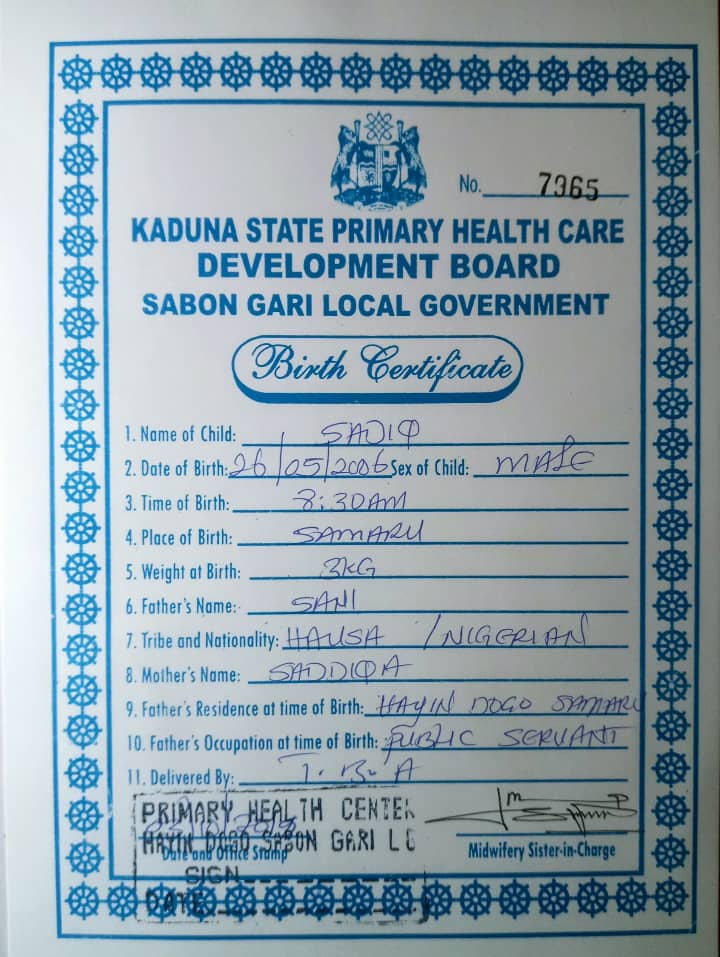 No. 7365
KADUNA STATE PRIMARY HEALTH CARE
DEVELOPMENT BOARD
SABON GARI LOCAL GOVERNMENT
Birth Certificate
1. Name of Child: SADIQ
2. Date of Birth: 26/05/2006 Sex of Child: MALE
3. Time of Birth: 8:30AM
4. Place of Birth: SAMARU
5. Weight at Birth: 3KG
6. Father's Name: SANI
7. Tribe and Nationality: HAUSA / NIGERIAN
8. Mother's Name: SADDIQA
9. Father's Residence at time of Birth: HAYIN DOGO SAMARU
10. Father's Occupation at time of Birth: PUBLIC SERVANT
11. Delivered By: T.B.A
PRIMARY HEALTH CENTER
HAYIN DOGO SABON GARI LG
Date and Office Stamp
Midwifery Sister-in-Charge
SIGN
DATE